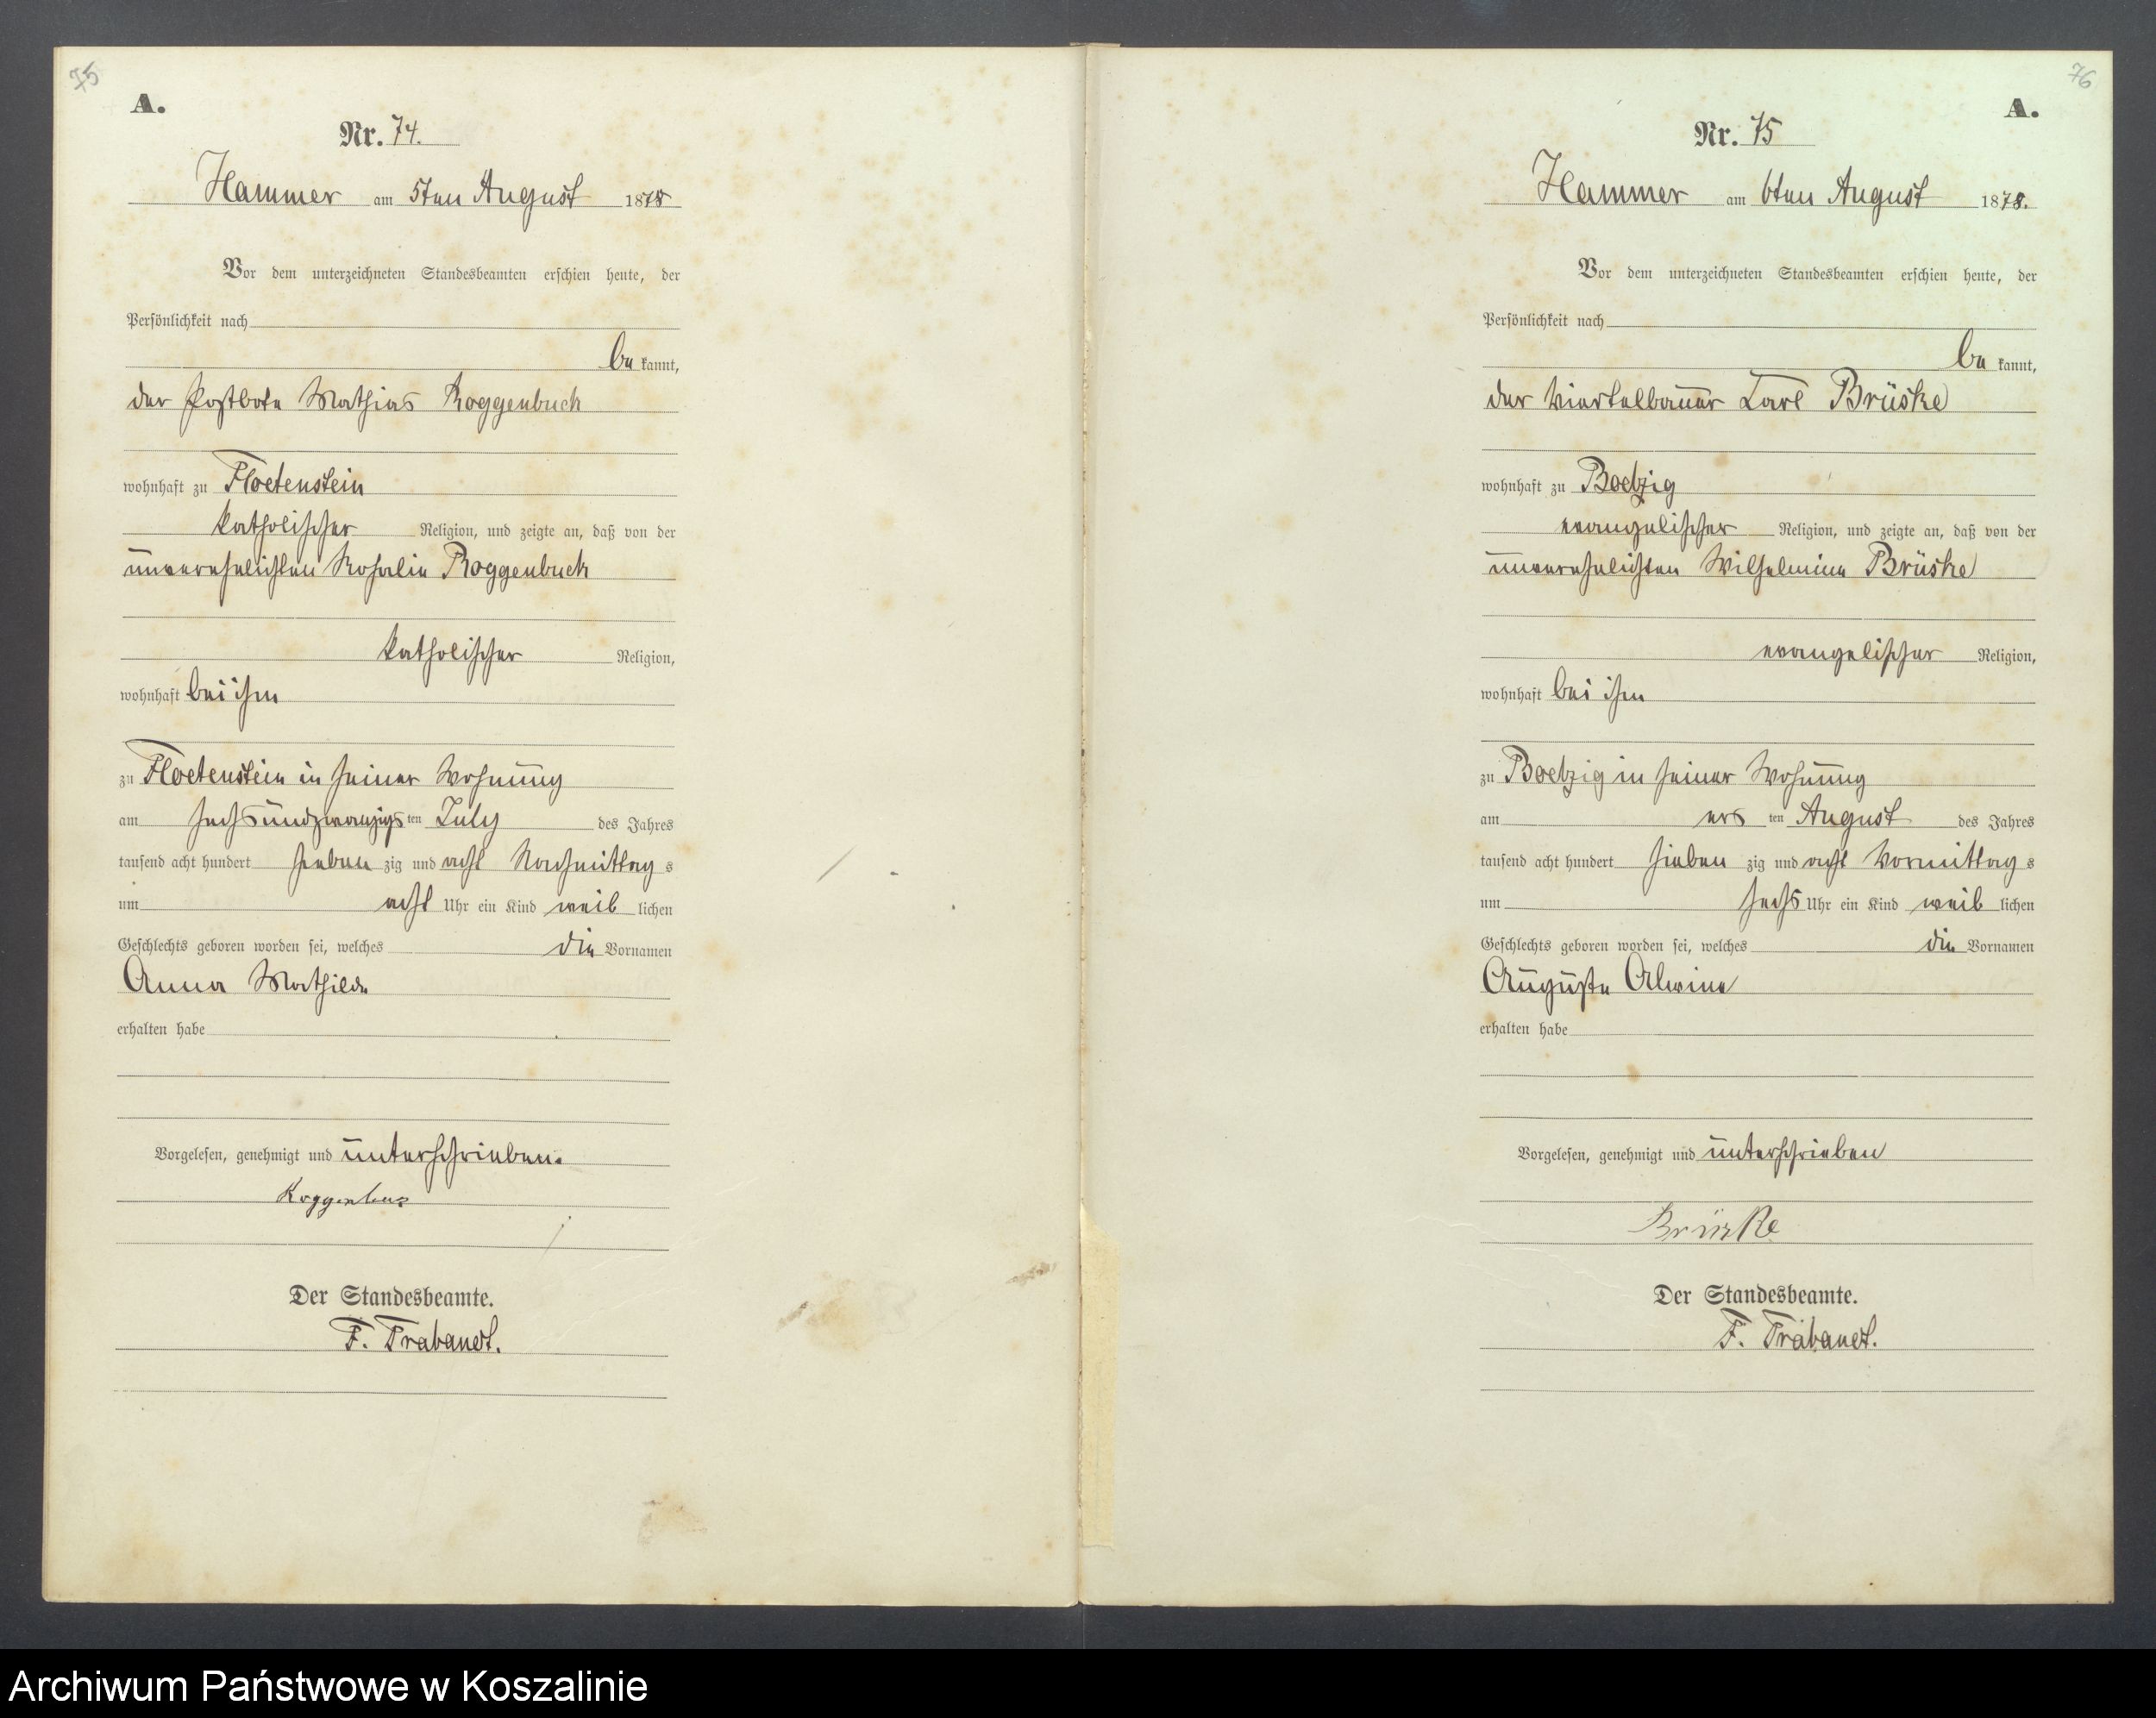 75
A.
Nr. 74.
Hammer am 5ten August 1878
Vor dem unterzeichneten Standesbeamten erschien heute, der
Persönlichkeit nach
be kannt,
der Postbote Mathias Roggenbuck
wohnhaft zu Floetenstein
katholischer Religion, und zeigte an, daß von der
unverehelichten Rosalie Roggenbuck
katholischer Religion,
wohnhaft bei ihm
zu Floetenstein in seiner Wohnung
am sechsundzwanzigs ten July des Jahres
tausend acht hundert sieben zig und acht Nachmittag s
um acht Uhr ein Kind weib lichen
Geschlechts geboren worden sei, welches die Vornamen
Anna Mathilde
erhalten habe
Vorgelesen, genehmigt und unterschrieben.
Der Standesbeamte.
F. Trabandt.
76
A.
Nr. 75
Hammer am 6ten August 1878.
Vor dem unterzeichneten Standesbeamten erschien heute, der
Persönlichkeit nach
be kannt,
der Viertelbauer Carl Brüske
wohnhaft zu Boelzig
evangelischer Religion, und zeigte an, daß von der
unverehelichten Wilhelmine Brüske
evangelischer Religion,
wohnhaft bei ihm
zu Boelzig in seiner Wohnung
am ers ten August des Jahres
tausend acht hundert sieben zig und acht Vormittag s
um sechs Uhr ein Kind weib lichen
Geschlechts geboren worden sei, welches die Vornamen
Auguste Alwine
erhalten habe
Vorgelesen, genehmigt und unterschrieben
Brüske
Der Standesbeamte.
F. Trabandt.
Archiwum Państwowe w Koszalinie